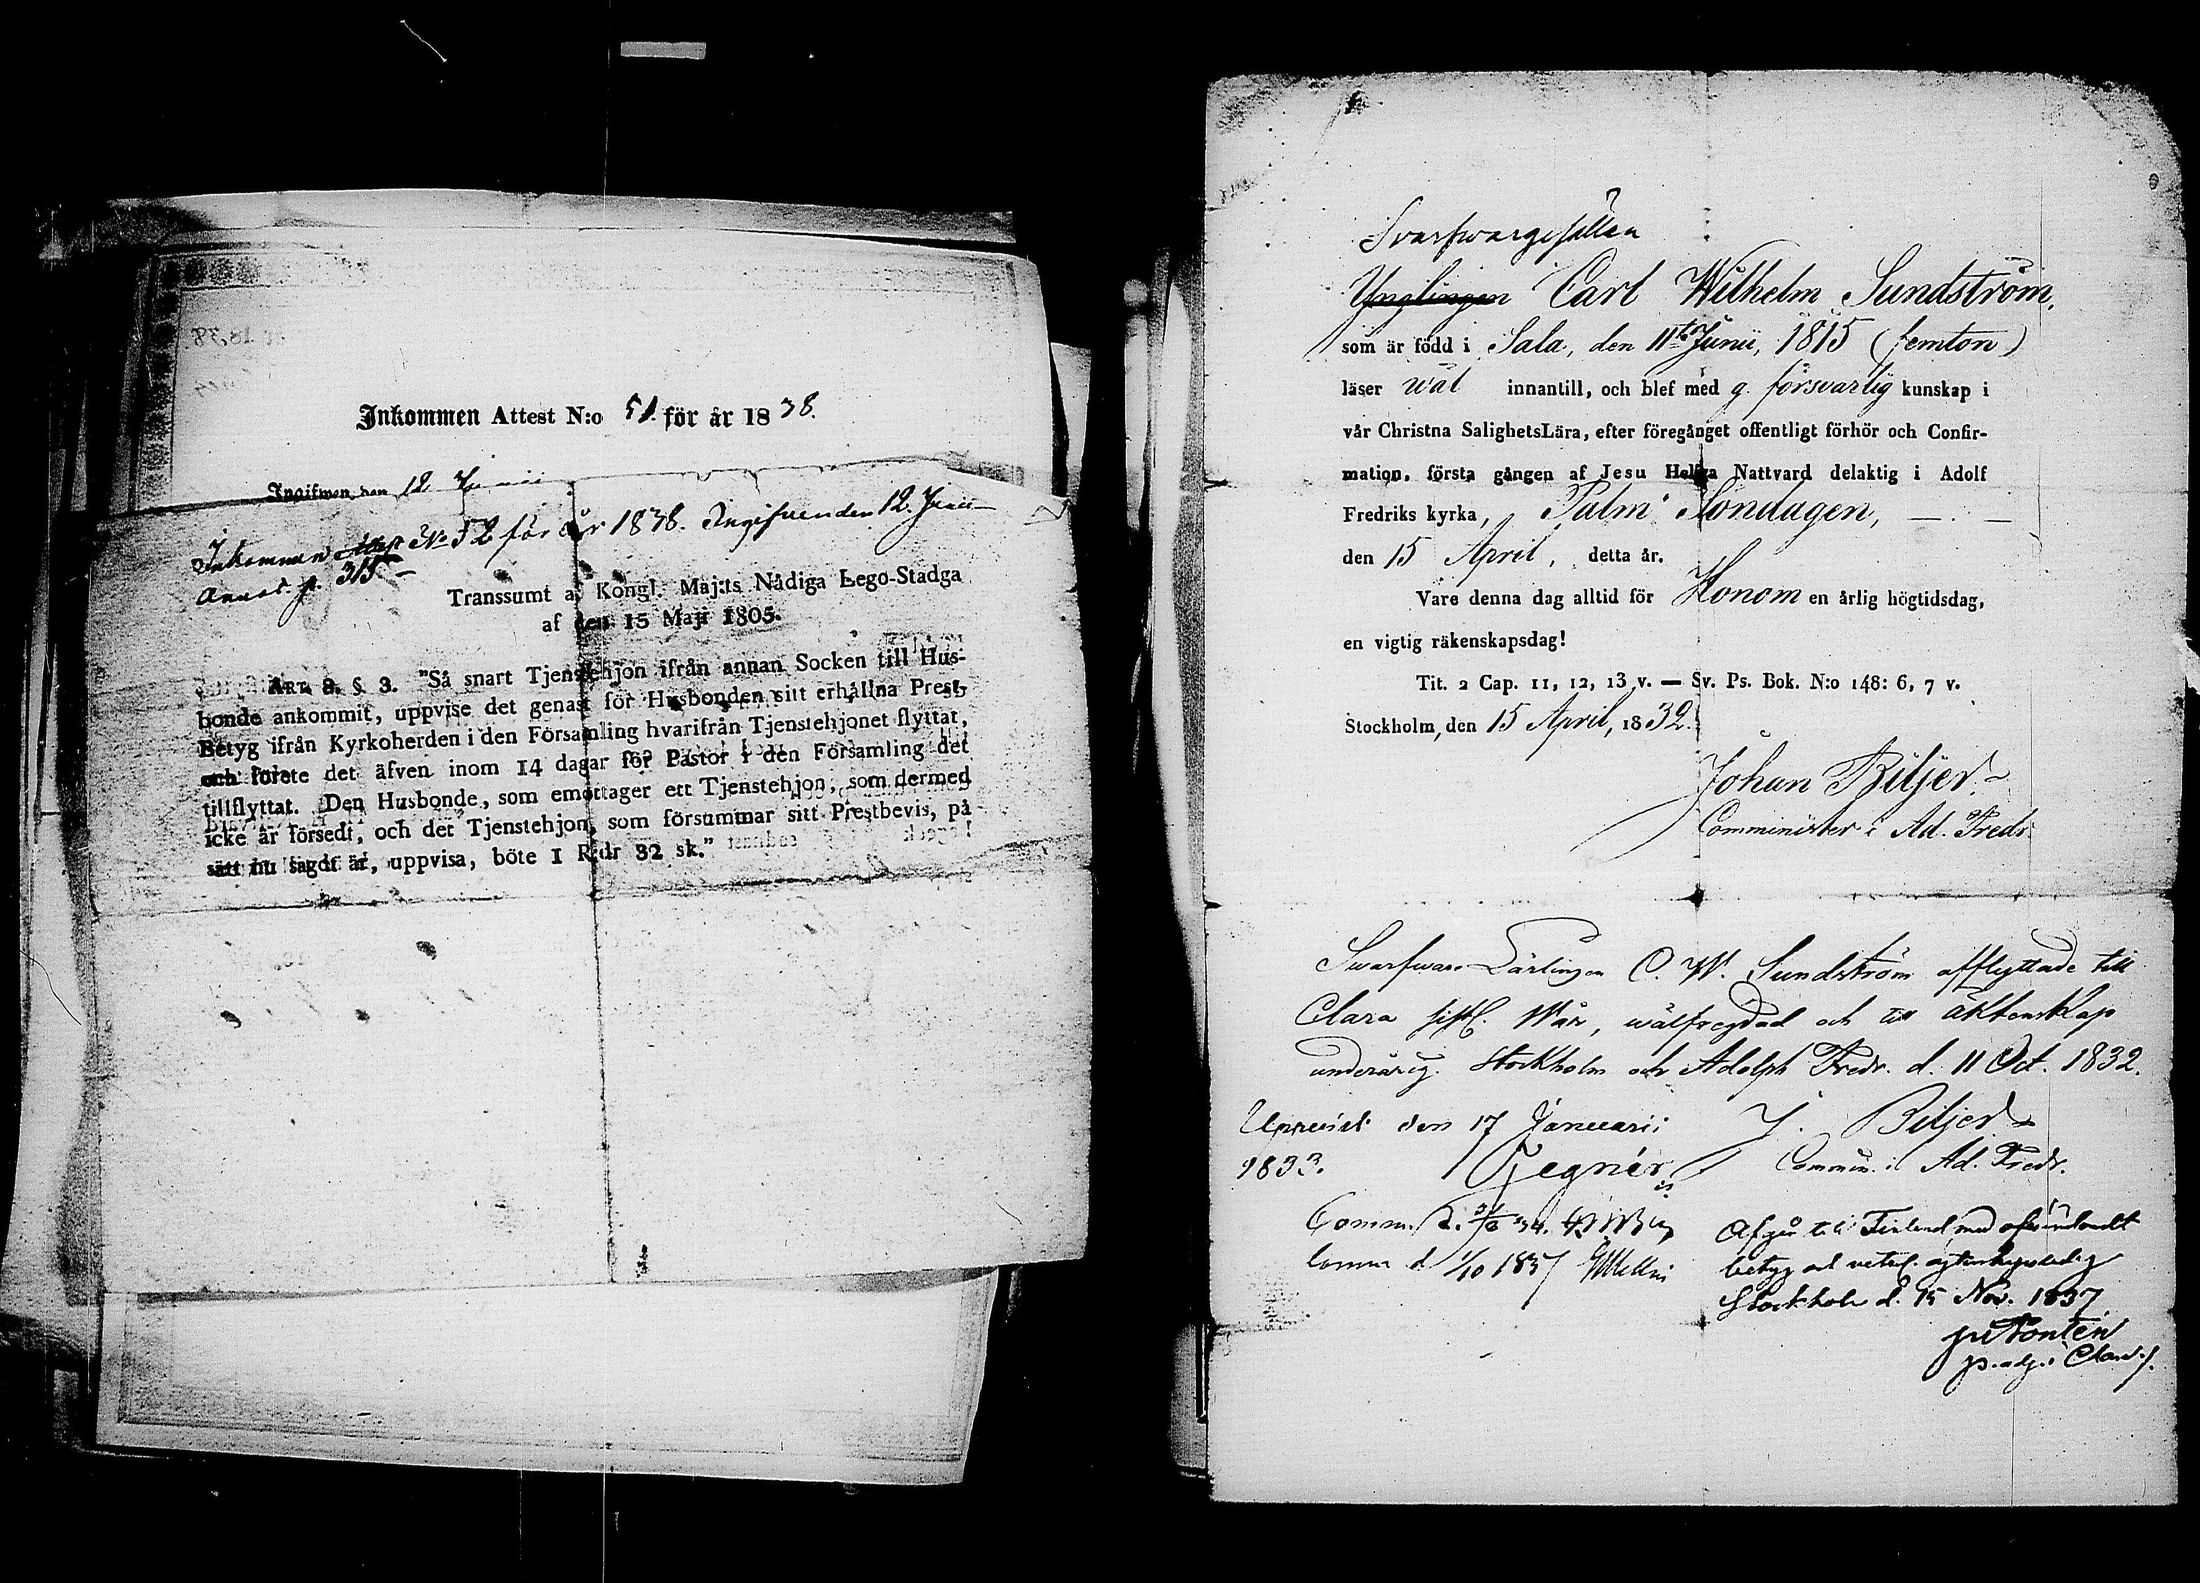 Inkommen Attest N:o 51. för år 1838.
Ingifwen den 12 Junii
Inkommen Attest No 52 för år 1838. Ingifven den 12. Junii
Annot. p. 315
Transsumt af Kongl. Maj:ts Nådiga Lego-Stadga
af den 15 Maji 1805.
ART. 8. §. 3. "Så snart Tjenstehjon ifrån annan Socken till Hus-
bonde ankommit, uppvise det genast för Husbonden sitt erhållna Prest-
Betyg ifrån Kyrkoherden i den Församling hvarifrån Tjenstehjonet flyttat,
och förete det äfven inom 14 dagar för Pastor i den Församling det
tillflyttat. Den Husbonde, som emottager ett Tjenstehjon, som dermed
icke är försedt, och det Tjenstehjon, som försummar sitt Prestbevis, på
sätt nu sagdt är, uppvisa, böte 1 R:dr 32 sk."
Svarfwargesällen
Ynglingen Carl Wilhelm Sundström,
som är född i Sala, den 11te Junii, 1815 (femton)
läser wäl innantill, och blef med g. försvarlig kunskap i
vår Christna SalighetsLära, efter föregånget offentligt förhör och Confir-
mation, första gången af Jesu Helga Nattvard delaktig i Adolf
Fredriks kyrka, Palm Söndagen,
den 15 April, detta år.
Vare denna dag alltid för Honom en årlig högtidsdag,
en vigtig räkenskapsdag!
Tit. 2 Cap. 11, 12, 13 v. — Sv. Ps. Bok. N:o 148: 6, 7 v.
Stockholm, den 15 April, 1832.
Johan Biljer
Comminister i Ad. Fredr.
Swarfware Lärlingen C. W. Sundström afflyttade till
Clara sistl. Wår, wälfregdad och till äktenskap
underårig. Stockholm och Adolph Fredr. d. 11 Oct. 1832.
Uppvist den 17 Januarii J. Biljer
1833. Regnér Commin. i Ad. Fredr.
Comm. d. 34.
Comm d 1/10 1837
Afgår till Finland med
betyg
Stockholm d. 15 Nov. 1837
Pontén
p. adj. i Clara f.